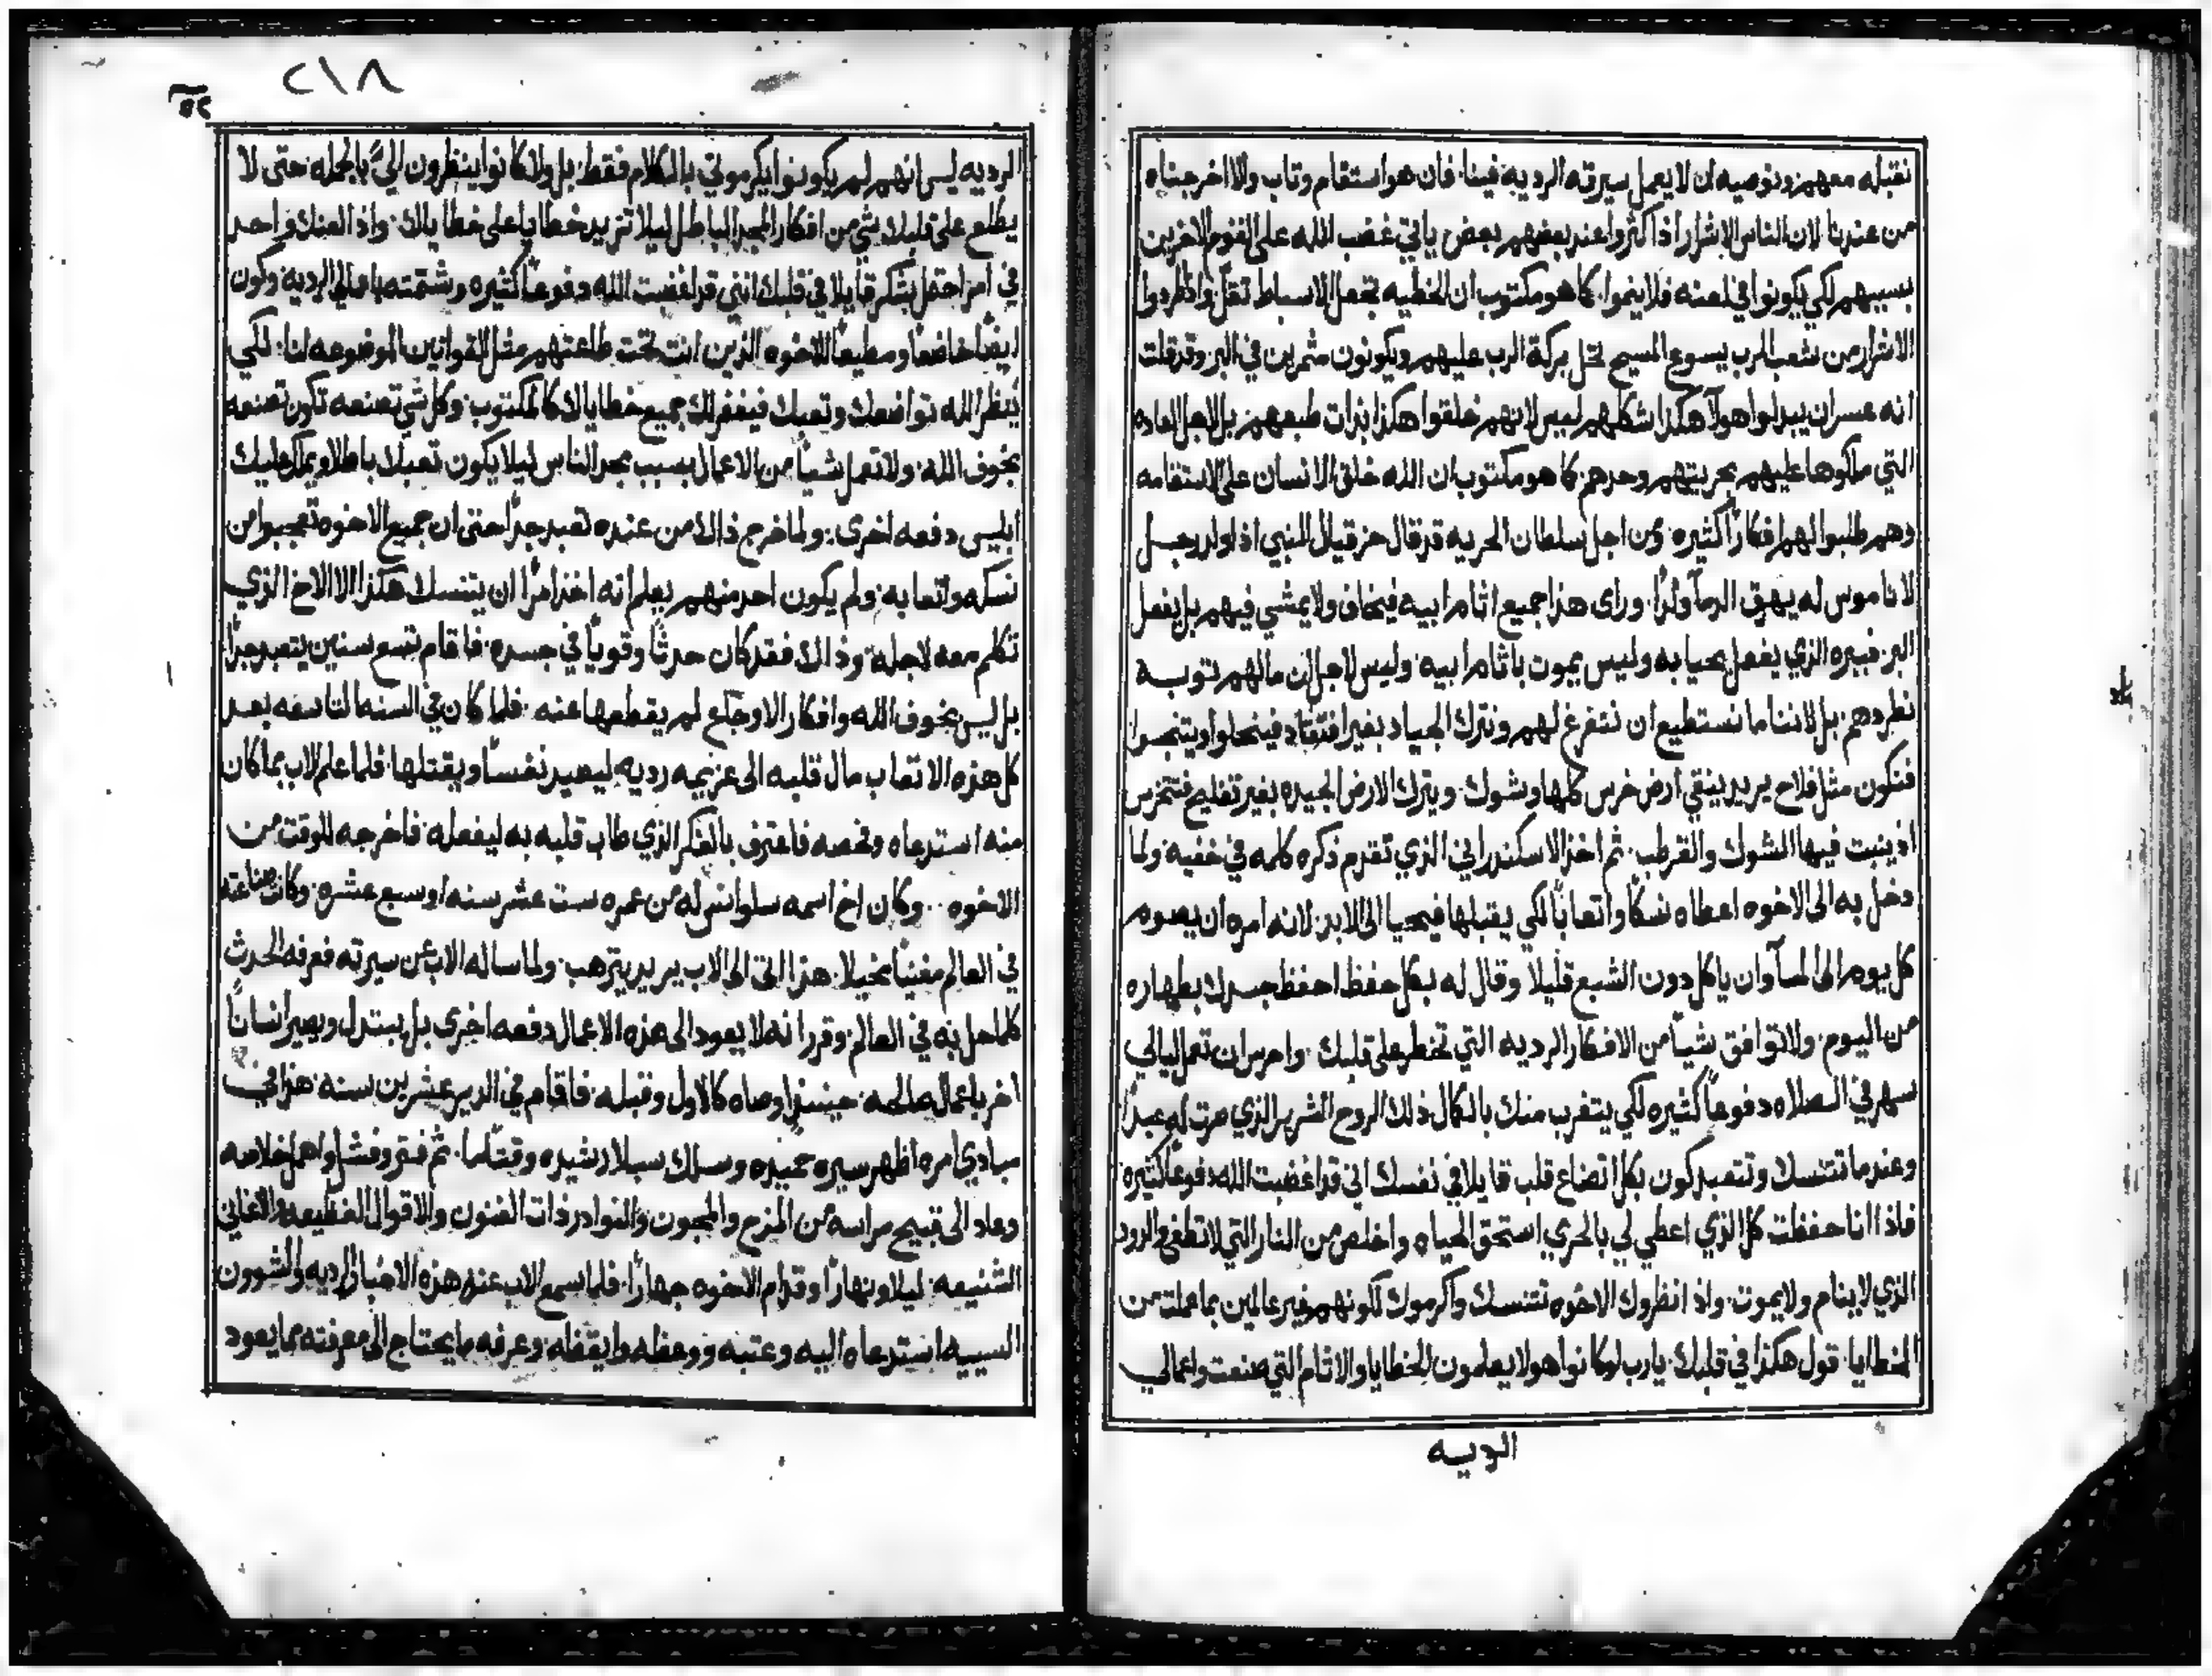 نقبله معهم ونوصيه ان لا يعمل سيرته الرديه فينا. فان هو استقام وتاب والا اخرجناه
من عندنا لان الناس الاشرار اذا كثروا عند بعضهم بعض ياتي غضب الله على القوم الاخرين
بسببهم لكي يكونوا في لعنه فلا ينموا. كما هو مكتوب ان الخطيه تجعل الاسباط تقل واذا طردوا
الاشرار من شعب الرب يسوع المسيح تحل بركة الرب عليهم ويكونون مثمرين في البر وقد قلت
انه عسر ان يبدلوا هولآ هكذا شكلهم ليس لانهم خلقوا هكذا بذات طبعهم بل لاجل العاده
التي ملكوها عليهم بحريتهم وحدهم. كما هو مكتوب ان الله خلق الانسان على الاستقامه
وهم طلبوا لهم افكارًا كثيره. ومن اجل سلطان الحريه قد قال حزقيال النبي اذا ولد رجل
لا ناموس له يهرق الدمآ ولدًا. وراى هذا جميع اثام ابيه فيخاف ولا يمشي فيهم بل يفعل
البر. فببره الذي يفعل يحيا به وليس يموت باثام ابيه. وليس لاجل ان ما لهم توبه
نطردهم. بل لاننا ما نستطيع ان نتفرغ لهم ونترك الجياد بغير افتقاد فينحلوا ويتنجسوا
فنكون مثل فلاح يريد ينقي ارض خرس كلها وشوك. ويترك الارض الجيده بغير تفليح فتتخرس
اذ ينبت فيها الشوك والقرطب. ثم اخذ الاسكندراني الذي تقدم ذكره كلمه في خفيه ولما
دخل به الى الاخوه اعطاه نسكًا واتعابًا لكي يقبلها فيحيا الى الابد. لانه امره ان يصوم
كل يوم الى المسآ وان ياكل دون الشبع قليلا وقال له بكل حفظ احفظ جسدك بطهاره
من اليوم. ولا توافق شيًا من الافكار الرديه التي تخطر على قلبك. واحرس ان تعمل ليالي
سهر في الصلاه دفوعًا كثيره لكي يتغرب منك بالكمال ذلك الروح الشرير الذي صرت له عبدًا
وعندما تتنسك وتتعبد كون بكل اتضاع قلب قايلا في نفسك اني قد اغضبت الله دفوعًا كثيره
فاذا انا حفظت كل الذي اعطي لي بالحري استحق الحياه واخلص من النار التي لا تطفى والدود
الذي لا ينام ولا يموت. واذا نظروك الاخوه تتنسك واكرموك لكونهم غير عالمين بما عملت من
الخطايا. قول هكذا في قلبك. يارب لو كانوا هولا يعلمون الخطايا والاثام التي صنعت واعمالي
الرديه
٢١٨
الرديه ليس انهم لم يكونوا يكرموني بالكلام فقط. بل ولا كانوا ينظرون اليَّ بالجمله حتى لا
يطلع على قلبك شي من افكار المجد الباطل ليلا تزيد خطايا على خطاياك. واذا لعنك واحد
في امر احتمل بشكر قايلا في قلبك انني قد اغضبت الله دفوعًا كثيره وشتمته باعمالي الرديه وكون
ايضًا خاضعًا ومطيعًا للاخوه الذين انت تحت طاعتهم مثل القوانين الموضوعه لنا. لكي
ينظر الله تواضعك وتعبك فيغفر لك جميع خطاياك كالمكتوب. وكل شي تصنعه تكون تصنعه
بخوف الله. ولا تعمل شيًا من الاعمال بسبب مجد الناس ليلا يكون تعبك باطلا ويملك عليك
ابليس دفعه اخرى. ولما خرج ذالك من عنده تعبد جدًا حتى ان جميع الاخوه تعجبوا من
نسكه واتعابه. ولم يكون احد منهم يعلم انه اخذ امرًا ان يتنسك هكذا الا الاخ الذي
تكلم معه لاجله. وذالك فقد كان حدثًا وقويًا في جسده. فاقام تسع سنين يتعبد جدًا
بل ليس بخوف الله وافكار الاوجاع لم يقطعها عنه. فلما كان في السنه التاسعه بعد
كل هذه الاتعاب مال قلبه الى عزيمه رديه ليصيد نفسًا ويقتلها. فلما علم الاب بما كان
منه استدعاه وفحصه فاعترف بالفكر الذي طاب قلبه به ليفعله. فاخرجه للوقت من
الاخوه.. وكان اخ اسمه سلوانس له من عمره ست عشر سنه او سبع عشره. وكان صناعته
في العالم مغنيًا بخيلا. هذا اتى الى الاب يريد يترهب. ولما ساله الاب عن سيرته فعرفه الحدث
كلما عمل به في العالم. وقرر انه لا يعود الى هذه الاعمال دفعه اخرى بل يبتدل ويصير انسانًا
اخر باعمال صالحه. حينيذٍ اوصاه كالاول وقبله. فاقام في الدير عشرين سنه. هذا في
مبادي امره اظهر سيره حميده وسلك سبلا رشيده وقتًا ما. ثم فتر وفشل واهمل خلاصه
وعاد الى قبيح مراسه من المزح والمجون والنوادر ذات الفنون والاقوال الفظيعه والاغاني
الشنيعه. ليلا ونهارًا وقدام الاخوه جهارًا. فلما سمع الاب عنه هذه الاخبار الرديه والشوون
السييه استدعاه اليه وعتبه ووعظه وايقظه وعرفه ما يحتاج الى معرفته مما يعود